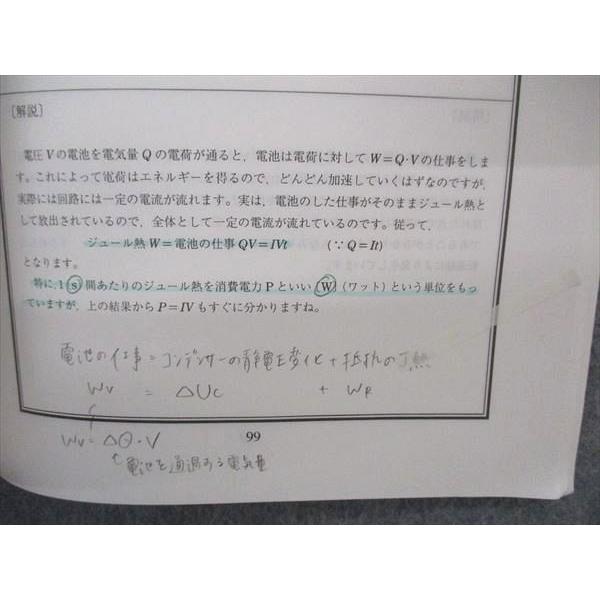 〔解説〕
電圧Vの電池を電気量Qの電荷が通ると、電池は電荷に対してW=Q・Vの仕事をしま
す。これによって電荷はエネルギーを得るので、どんどん加速していくはずなのですが、
実際には回路には一定の電流が流れます。実は、電池のした仕事がそのままジュール熱と
して放出されているので、全体として一定の電流が流れているのです。従って、
ジュール熱W=電池の仕事QV=IVt (∵Q=It)
となります。
特に、1(s)間あたりのジュール熱を消費電力Pといい(W)(ワット)という単位をもっ
ていますが、上の結果からP=IVもすぐに分かりますね。
電池の仕事=コンデンサーの静電エ変化+抵抗のJ熱
Wv = ΔUc + WR
Wv=ΔQ・V
99
電池を通過する電気量